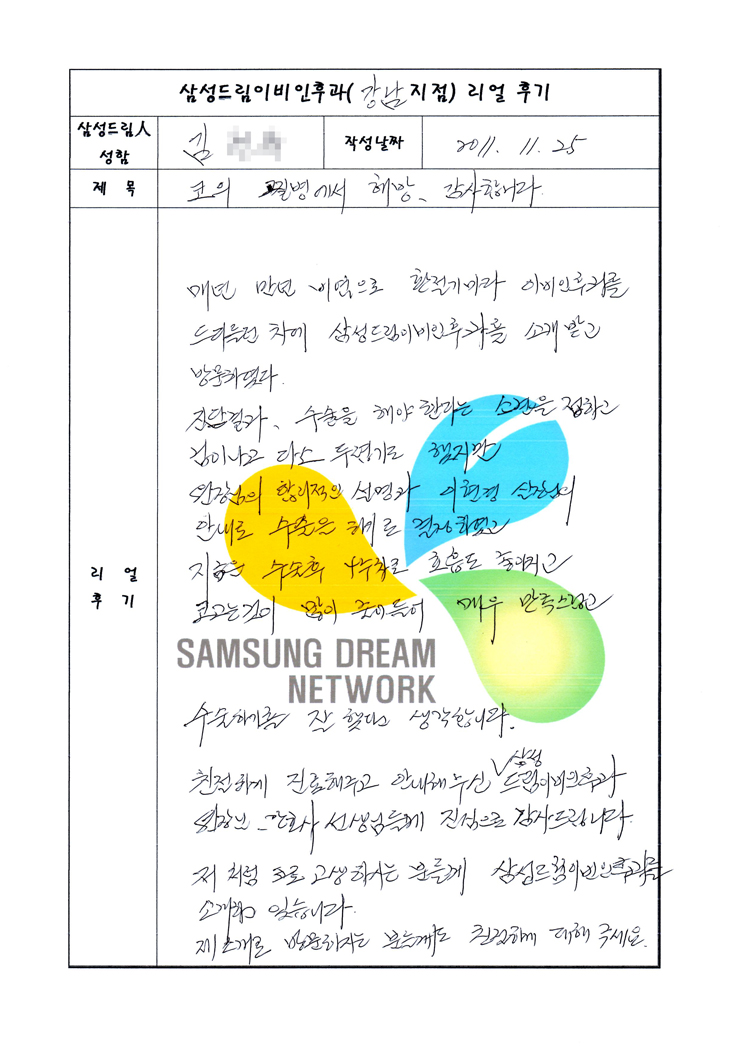 삼성드림이비인후과( 강남 지점) 리얼 후기
삼성드림人
성함
김
작성날짜
2011. 11. 25
제 목
코의 질병에서 해방, 감사합니다.
리 얼
후 기
매년 만년 비염으로 환절기마다 이비인후과를
드려름던 차에 삼성드림이비인후과를 소개받고
방문하였다.
진단결과, 수술을 해야 한다는 소견을 접하고
겁이나고 다소 두렵기도 했지만
원장님의 합리적인 설명과 이현경 실장의
안내로 수술을 하기로 결정하였고
지금은 수술후 4주차로 호흡도 좋아지고
코고는것이 많이 줄어들어 매우 만족스럽고
SAMSUNG DREAM
NETWORK
수술하기를 잘 했다고 생각합니다.
친절하게 진료해주고 안내해주신 삼성드림이비인후과
원장님 간호사 선생님들께 진심으로 감사드립니다.
저 처럼 코로 고생하시는 분들께 삼성드림이비인후과를
소개하고 있습니다.
제 소개로 방문하자는 분들께도 친절하게 대해 주세요.